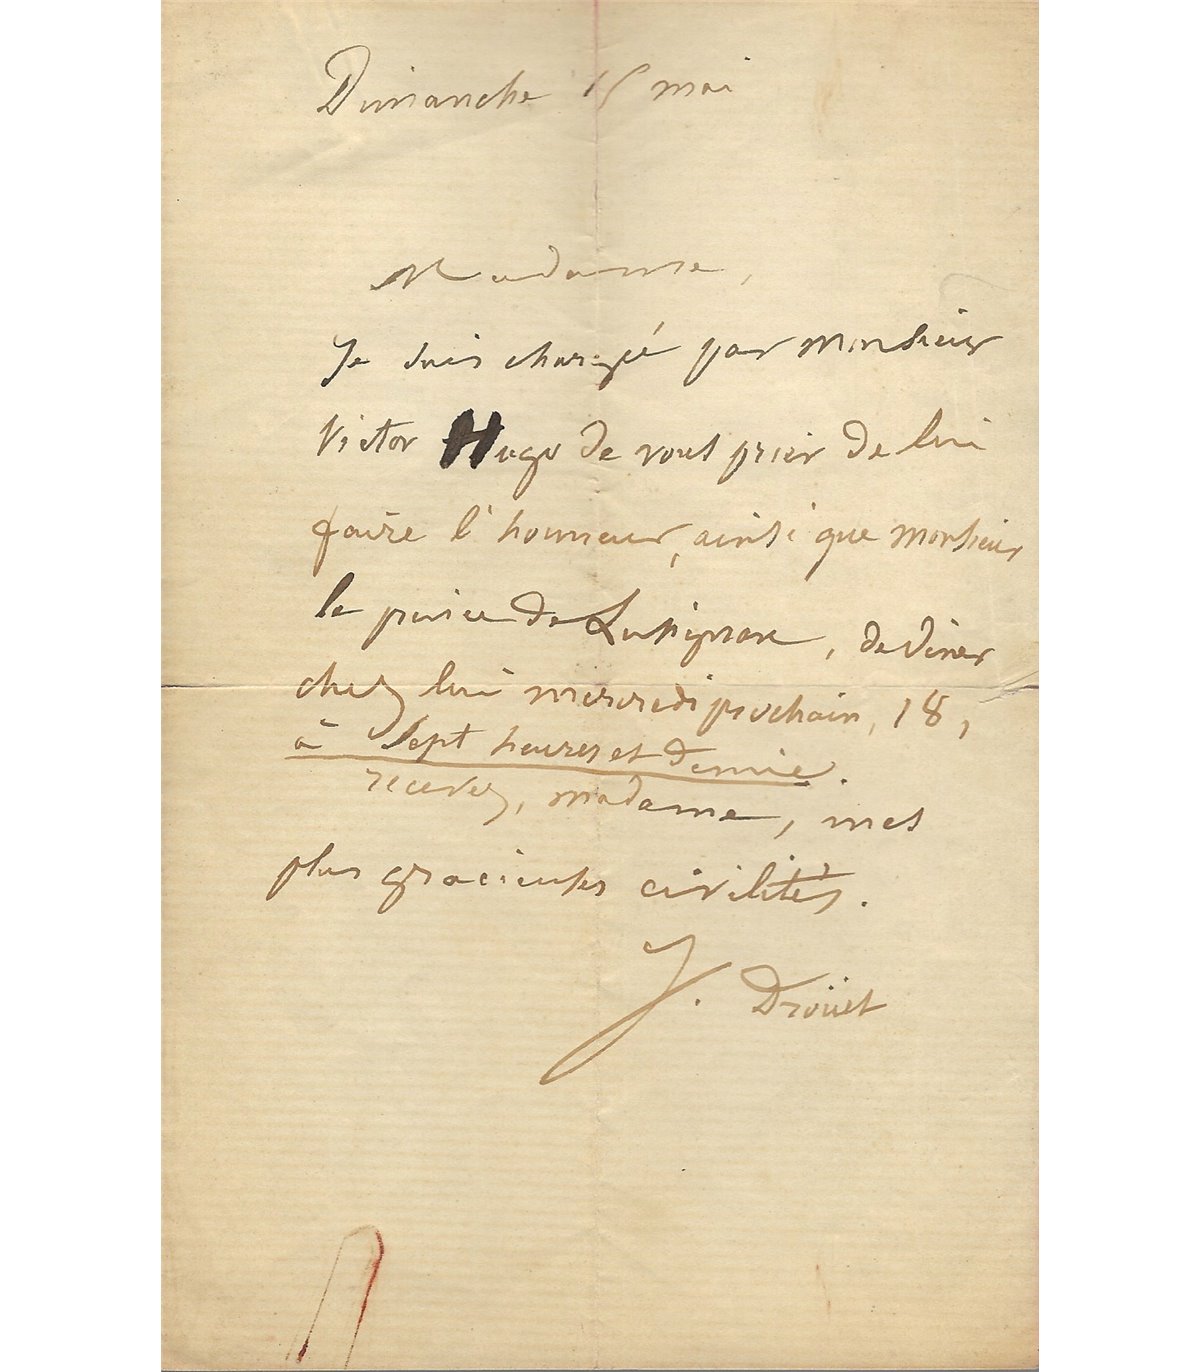 Dimanche 15 mai
Madame,
Je suis chargée par Monsieur
Victor Hugo de vous prier de lui
faire l'honneur, ainsi que Monsieur
le prince de Lusignan, de diner
chez lui mercredi prochain, 18,
à Sept heures et demie.
recevez, madame, mes
plus gracieuses civilités.
J. Droüet